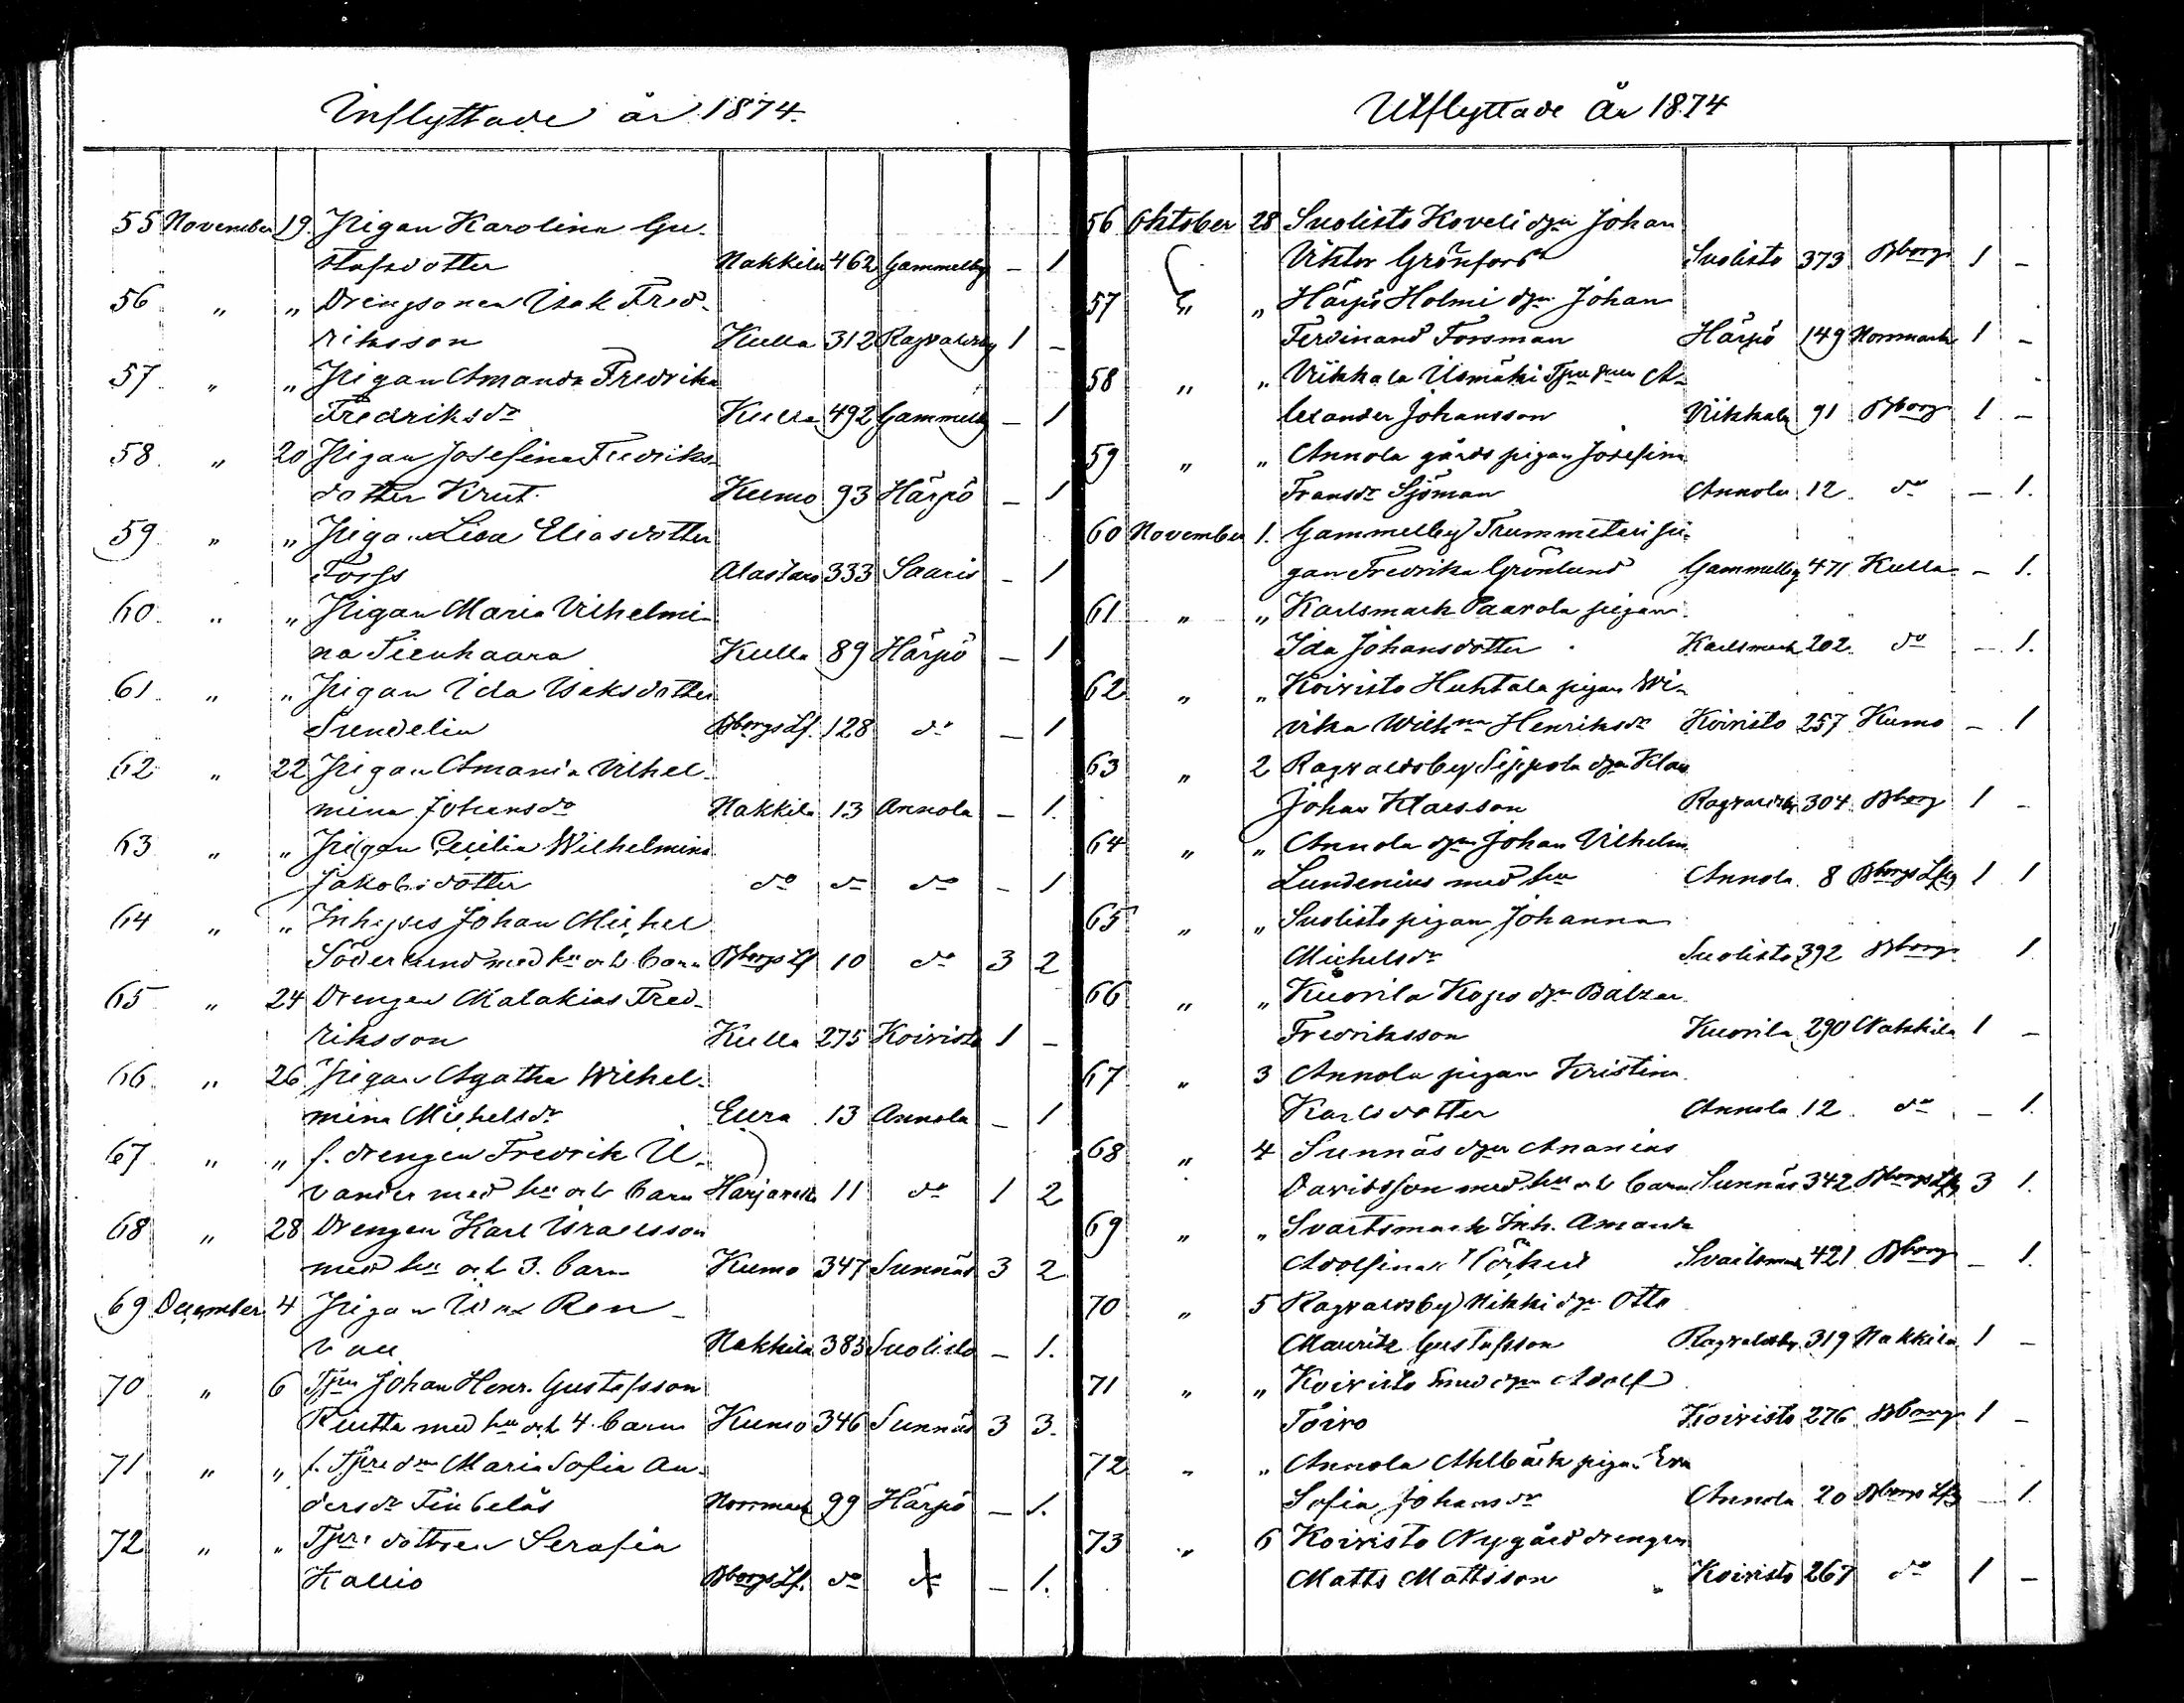 Inflyttade år 1874.
55 November 19. Pigan Karolina Gu-
stafsdotter Nakkila 462 Gammelby – 1
56 „ „ Drengsonen Isak Fred-
riksson Kulla 312 Ragvaldsby 1 –
57 „ „ Pigan Amanda Fredrika
Fredriksdr Kulla 492 Gammelby – 1
58 „ 20 Pigan Josefina Fredriks-
dotter Krut Kumo 93 Härpö – 1
59 „ „ Pigan Lisa Eliasdotter
Forss Alastaro 333 Saaris – 1
60 „ „ Pigan Maria Vilhelmi-
na Tienhaara Kulla 89 Härpö – 1
61 „ „ Pigan Ida Isaksdotter
Sundelin Bborgs Lf. 128 do – 1
62 „ 22 Pigan Amanda Vilhel-
mina Johansdr Nakkila 13 Annola – 1.
63 „ „ Pigan Cecilia Wilhelmina
Jakobsdotter do do do – 1
64 „ „ Inhyses Johan Michel
Söderlund med hu och barn Bborgs Lf 10 do 3 2
65 „ 24 Drengen Malakias Fred-
riksson Kulla 275 Koivisto 1 –
66 „ 26 Pigan Agatha Wilhel-
mina Michelsdr Eura 13 Annola – 1
67 „ „ f. drengen Fredrik U-
vander med hu och barn Harjavalta 11 do 1 2
68 „ 28 Drengen Karl Israelsson
med hu och 3. barn Kumo 347 Sunnäs 3 2
69 December 4 Pigan Ren-
vall Nakkila 383 Suolisto – 1.
70 „ 6 Tjn Johan Henr. Gustafsson
Riutta med hu och 4. barn Kumo 346 Sunnäs 3 3.
71 „ „ f. Maria Sofia An-
dersdr Norrmark 99 Härpö – 1.
72 „ „ dottren Serafia
Kallio Bborgs Lf. do do – 1.
Utflyttade År 1874
56 Oktober 28 Suolisto Koveli dgn Johan
Viktor Grönfors Suolisto 373 Bborg 1 –
57 „ „ Härpö Holmi dgn Johan
Ferdinand Forsman Härpö 149 Norrmark 1 –
58 „ „ Viikkala A-
lexander Johansson Viikkala 91 Bborg 1 –
59 „ „ Annola gårds pigan Josefina
Fransdr Sjöman Annola 12 do – 1.
60 November 1. Gammelby Trummetari pi-
gan Fredrika Grönlund Gammelby 471 Kulla – 1.
61 „ „ Karlsmark Paavola pigan
Ida Johansdotter Karlsmark 202 do – 1.
62 „ „ Koivisto Huhtala pigan
vika Wilhna Henriksdr Koivisto 257 Kumo – 1
63 „ 2 Ragvaldsby Seppola dgn Klas
Johan Klasson Ragvaldsby 304 Bborg 1 –
64 „ „ Annola dgn Johan Vilhelm
Lundenius med hu Annola 8 Bborgs Lfg 1 1
65 „ „ Suolisto pigan Johanna
Michelsdr Suolisto 392 Bborg 1
66 „ „ Kuorila Kopo dgn Balzar
Fredriksson Kuorila 290 Nakkila 1 –
67 „ 3 Annola pigan Kristina
Karlsdotter Annola 12 do – 1.
68 „ 4 Sunnäs dgn Ananias
Davidsson med hu och barn Sunnäs 342 Bborgs Lfg 3 1.
69 „ „ Svartsmark Inh. Amanda
Adolfina Svartsmark 421 Bborg – 1.
70 „ 5 Ragvaldsby Nikki dgn Otto
Mauritz Gustafsson Ragvaldsby 319 Nakkila 1 –
71 „ „ Koivisto dgn Adolf
Toivo Koivisto 276 Bborg 1 –
72 „ „ Annola Ahlbäck pigan Eva
Sofia Johansdr Annola 20 Bborgs Lfg – 1.
73 „ 6 Koivisto Nygård drengen
Matts Mattsson Koivisto 267 do 1 –